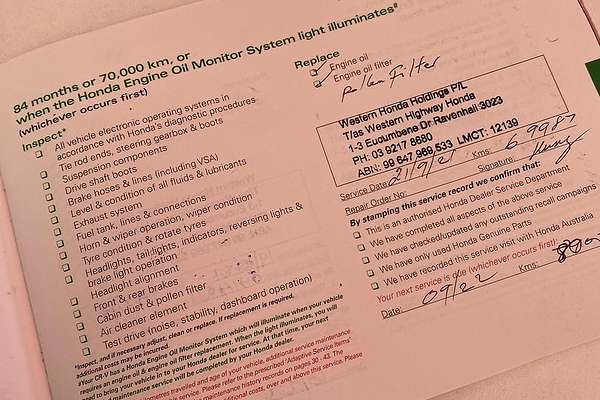 84 months or 70,000 km, or
when the Honda Engine Oil Monitor System light illuminates#
(whichever occurs first)
Inspect*
All vehicle electronic operating systems in
accordance with Honda's diagnostic procedures
Tie rod ends, steering gearbox & boots
Suspension components
Drive shaft boots
Brake hoses & lines (including VSA)
Level & condition of all fluids & lubricants
Exhaust system
Fuel tank, lines & connections
Horn & wiper operation, wiper condition
Tyre condition & rotate tyres
Headlights, tail lights, indicators, reversing lights &
brake light operation
Headlight alignment
Front & rear brakes
Cabin dust & pollen filter
Air cleaner element
Test drive (noise, stability, dashboard operation)
*Inspect, and if necessary adjust, clean or repair. If replacement is required,
additional costs may be incurred.
#Your CR-V has a Honda Engine Oil Monitor System which will illuminate when your vehicle
requires an engine oil & engine oil filter replacement. When the light illuminates, you will
need to bring your vehicle in to your Honda dealer for service. At that time, your next
maintenance service will be completed by your Honda dealer.
kilometres travelled and age of your vehicle, additional service maintenance
Please refer to the prescribed 'Adaptive Service Items'
maintenance history records on pages 30 - 43. The
additional costs, over and above this service. Please
Replace
Engine oil
Engine oil filter
Pollen Filter
Western Honda Holdings P/L
T/as Western Highway Honda
1-3 Eudumbene Dr Ravenhall 3023
PH: 03 9217 8680
ABN: 99 647 969 533 LMCT: 12139
Service Date: 21/9/21 Kms: 69987
Repair Order No: Signature:
By stamping this service record we confirm that:
This is an authorised Honda Dealer Service Department
We have completed all aspects of the above service
We have checked/updated any outstanding recall campaigns
We have only used Honda Genuine Parts
We have recorded this service visit with Honda Australia
Your next service is due (whichever occurs first):
Date: 09/22 Kms: